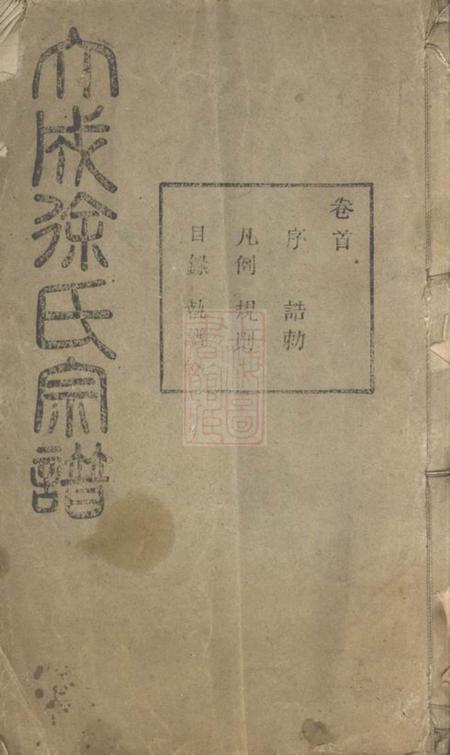 大成徐氏宗譜
卷首
序 誥勅
凡例 規則
目錄 執